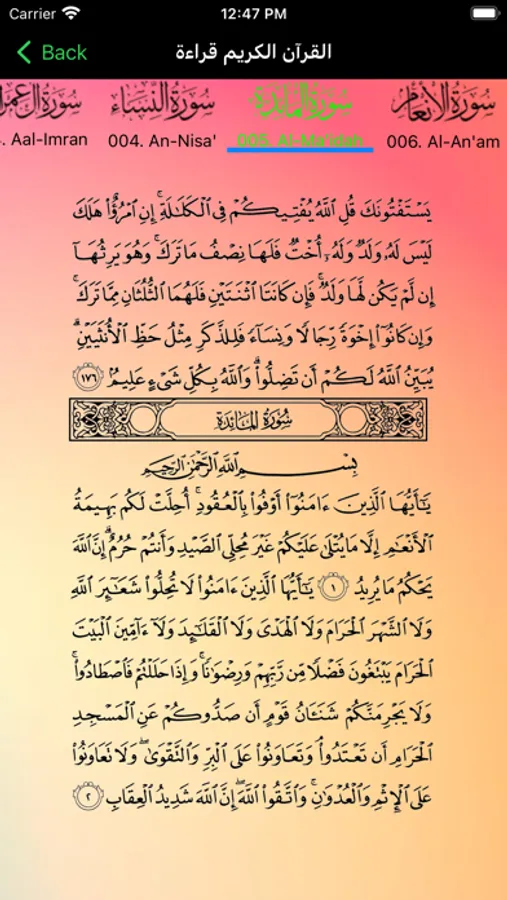 Carrier 12:47 PM
Back القرآن الكريم قراءة
سورة آل عمران سورة النساء سورة المائدة سورة الأنعام
. Aal-Imran 004. An-Nisa' 005. Al-Ma'idah 006. Al-An'am
يَسْتَفْتُونَكَ قُلِ ٱللَّهُ يُفْتِيكُمْ فِى ٱلْكَلَـٰلَةِ ۚ إِنِ ٱمْرُؤٌا۟ هَلَكَ
لَيْسَ لَهُۥ وَلَدٌ وَلَهُۥٓ أُخْتٌ فَلَهَا نِصْفُ مَا تَرَكَ ۚ وَهُوَ يَرِثُهَآ
إِن لَّمْ يَكُن لَّهَا وَلَدٌ ۚ فَإِن كَانَتَا ٱثْنَتَيْنِ فَلَهُمَا ٱلثُّلُثَانِ مِمَّا تَرَكَ ۚ
وَإِن كَانُوٓا۟ إِخْوَةً رِّجَالًا وَنِسَآءً فَلِلذَّكَرِ مِثْلُ حَظِّ ٱلْأُنثَيَيْنِ ۗ
يُبَيِّنُ ٱللَّهُ لَكُمْ أَن تَضِلُّوا۟ ۗ وَٱللَّهُ بِكُلِّ شَىْءٍ عَلِيمٌۢ ١٧٦
سُورَةُ المَائِدَةِ
بِسْمِ ٱللَّهِ ٱلرَّحْمَـٰنِ ٱلرَّحِيمِ
يَـٰٓأَيُّهَا ٱلَّذِينَ ءَامَنُوٓا۟ أَوْفُوا۟ بِٱلْعُقُودِ ۚ أُحِلَّتْ لَكُم بَهِيمَةُ
ٱلْأَنْعَـٰمِ إِلَّا مَا يُتْلَىٰ عَلَيْكُمْ غَيْرَ مُحِلِّى ٱلصَّيْدِ وَأَنتُمْ حُرُمٌ ۗ إِنَّ ٱللَّهَ
يَحْكُمُ مَا يُرِيدُ ١ يَـٰٓأَيُّهَا ٱلَّذِينَ ءَامَنُوا۟ لَا تُحِلُّوا۟ شَعَـٰٓئِرَ ٱللَّهِ
وَلَا ٱلشَّهْرَ ٱلْحَرَامَ وَلَا ٱلْهَدْىَ وَلَا ٱلْقَلَـٰٓئِدَ وَلَآ ءَآمِّينَ ٱلْبَيْتَ
ٱلْحَرَامَ يَبْتَغُونَ فَضْلًا مِّن رَّبِّهِمْ وَرِضْوَٰنًا ۚ وَإِذَا حَلَلْتُمْ فَٱصْطَادُوا۟ ۚ
وَلَا يَجْرِمَنَّكُمْ شَنَـَٔانُ قَوْمٍ أَن صَدُّوكُمْ عَنِ ٱلْمَسْجِدِ
ٱلْحَرَامِ أَن تَعْتَدُوا۟ ۘ وَتَعَاوَنُوا۟ عَلَى ٱلْبِرِّ وَٱلتَّقْوَىٰ ۖ وَلَا تَعَاوَنُوا۟
عَلَى ٱلْإِثْمِ وَٱلْعُدْوَٰنِ ۚ وَٱتَّقُوا۟ ٱللَّهَ ۖ إِنَّ ٱللَّهَ شَدِيدُ ٱلْعِقَابِ ٢